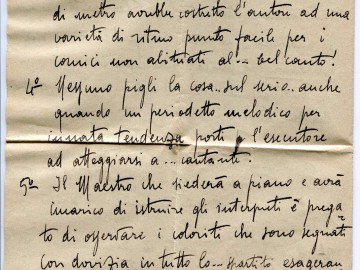 di metro avrebbe costretto l'autore ad una
varietà di ritmo punto facile per i
comici non abituati al... bel canto!
4º Nessuno pigli la cosa.. sul serio.. anche
quando un periodetto melodico per
innata tendenza porti l'esecutore
ad atteggiarsi a... cantante.
5º Il Maestro che siederà a piano e avrà
incarico di istruire gli interpeti è prega=
to di osservare i coloriti che sono segnati
con dovizia in tutto lo... spartito esageran